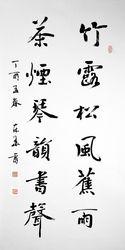 竹露松風蕉雨
茶煙琴韻書聲
丁酉孟春